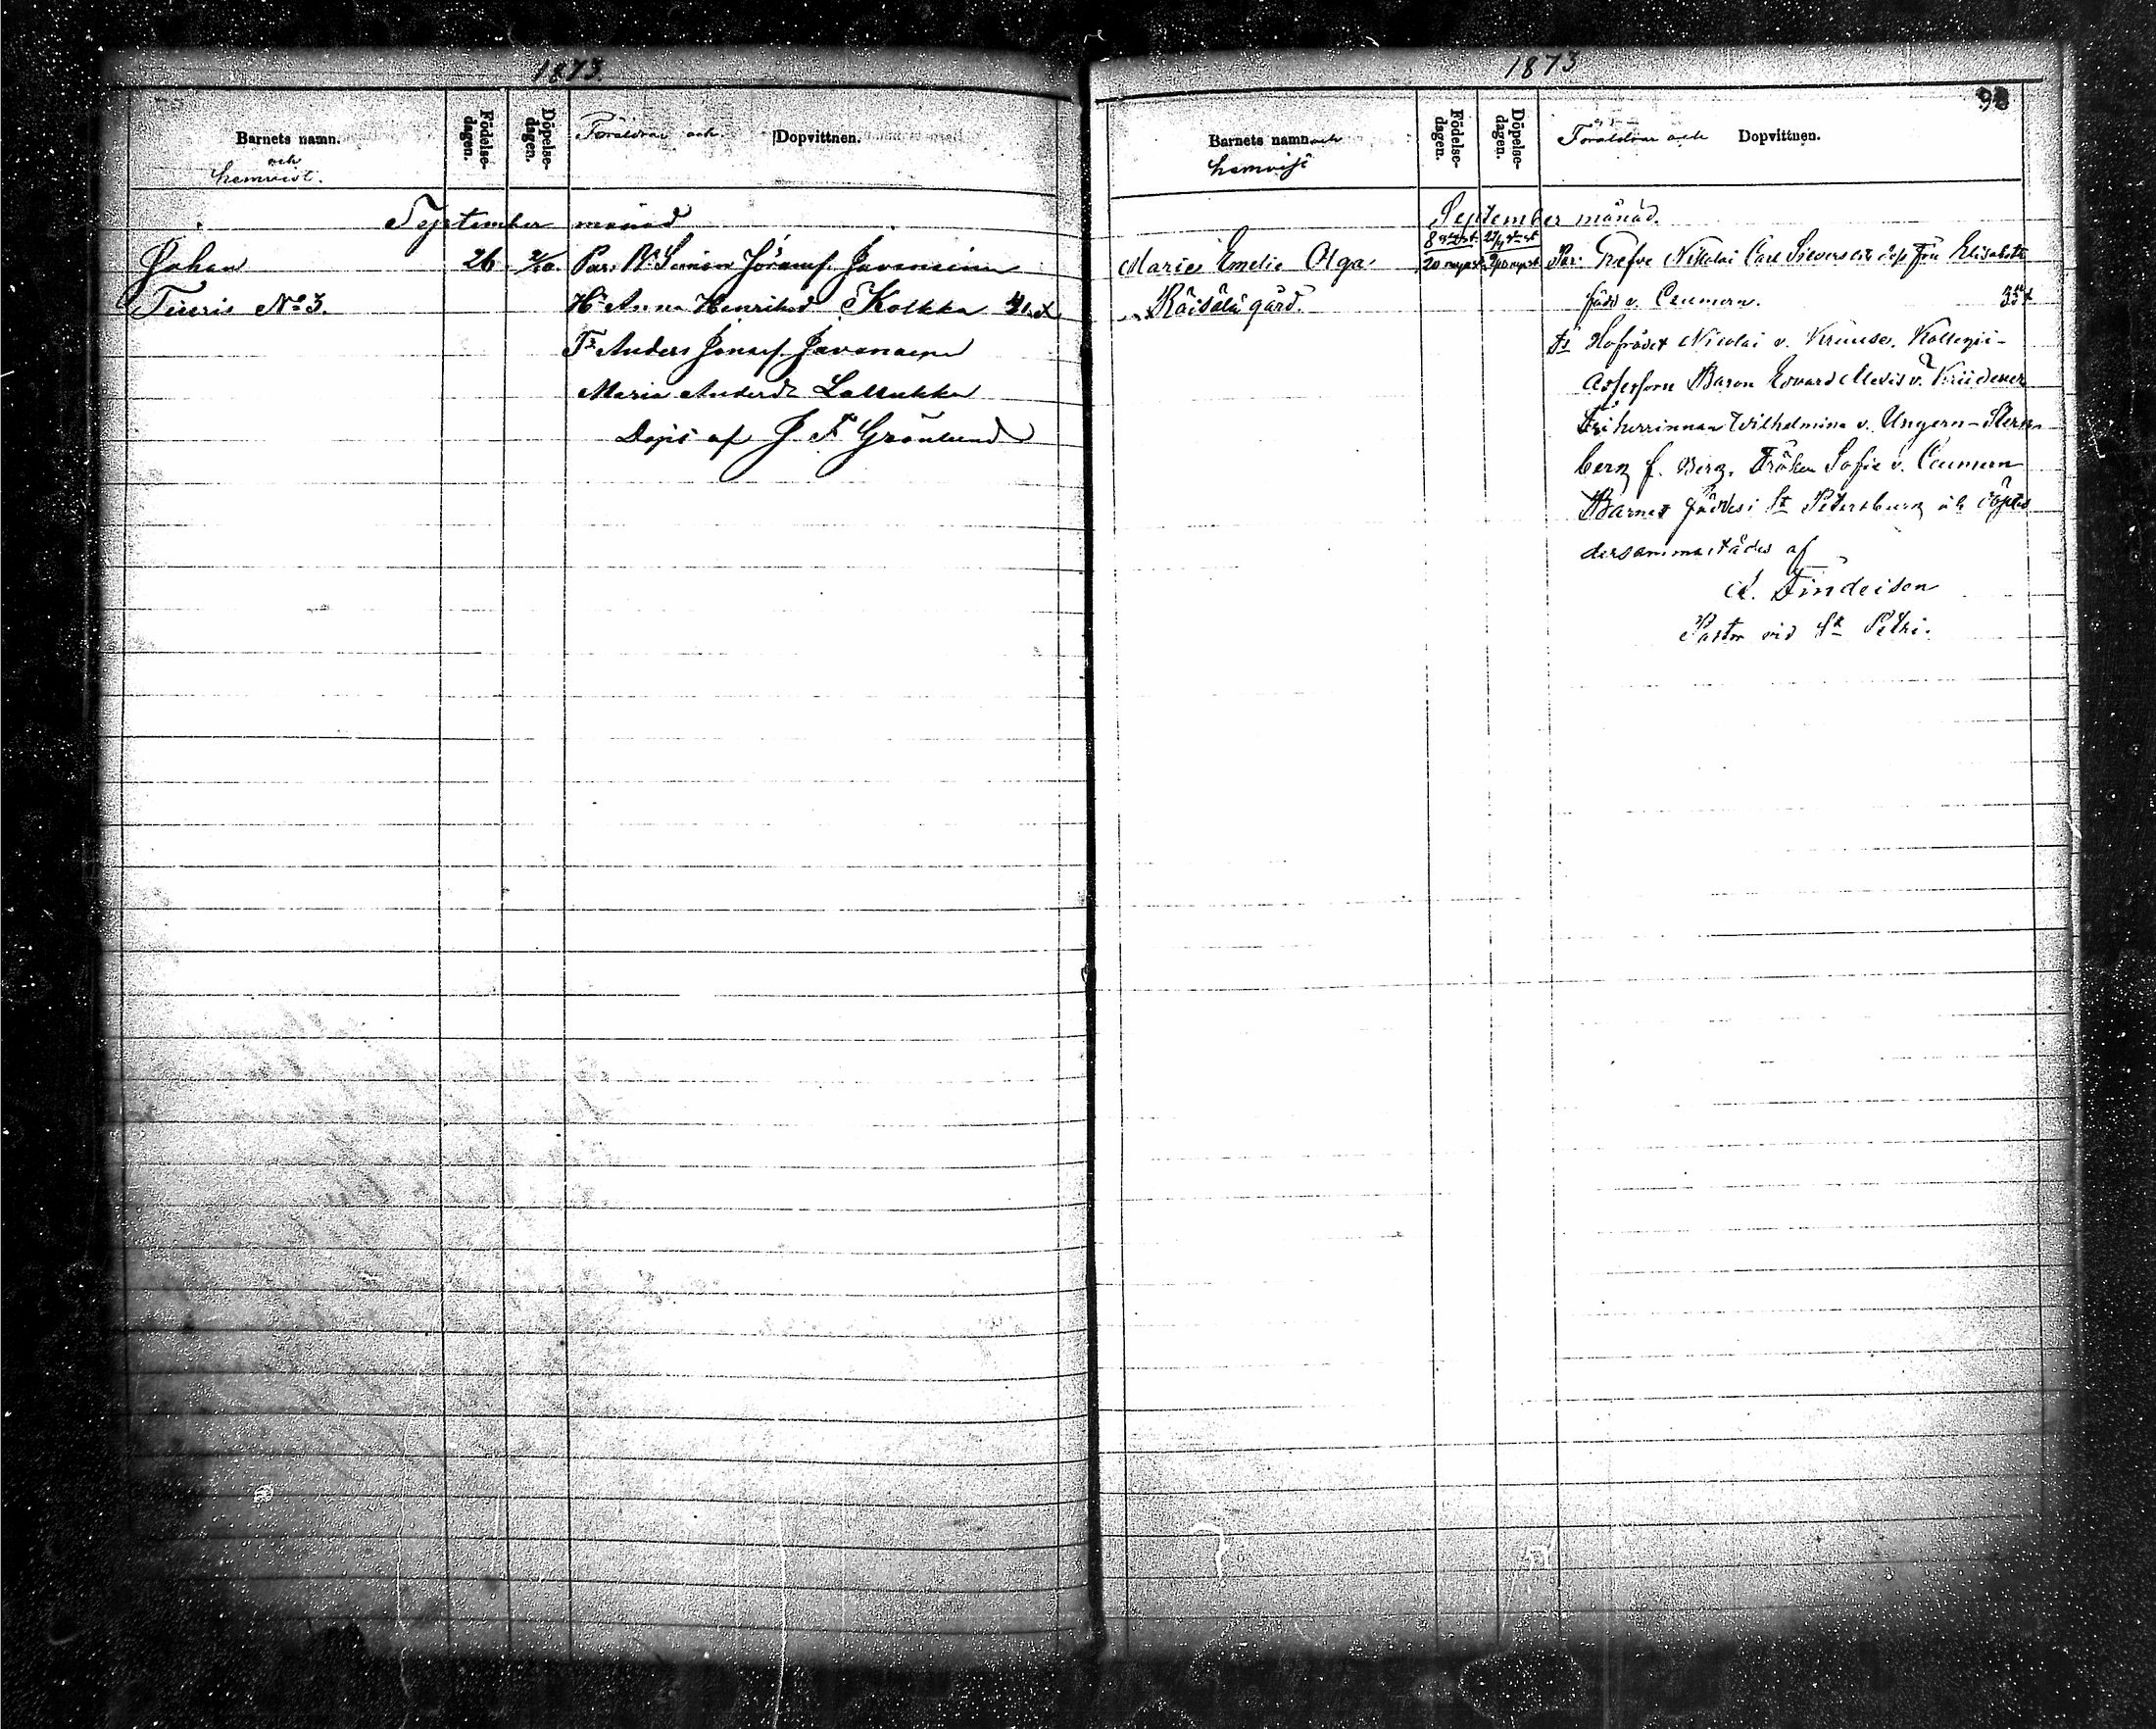 1873.
Barnets namn. och hemvist.
Födelse-dagen.
Döpelse-dagen.
Föräldrar och Dopvittnen.
September månad
Johan 26 2/10 Par. B. Simon Göranss. Javanainen
Tieris No 3. Hu Anna Henriksd Kolkka
Ts Anders Jonass. Javanainen
Maria Andersdr Lallukka
Döpt af J. F. Grönlund
1873
98
Barnets namn och hemvist
Födelse-dagen.
Döpelse-dagen.
Föräldrar och Dopvittnen.
September månad.
8 g. st.
Marie Emelie Olga 20 ny st. Par: Grefve Nikolai Carl Sievers och dess Fru Elisabeth
Räisälä gård. född v. Ceumern. 33
Ts Hofrådet Nicolai v. Kruuse, Kollegii-
assessorn Baron Edvard Alexis v. Krüdener
Friherrinnan Wilhelmina v. Ungern-Stern-
berg f. Berg, Fröken Sofie v. Ceumern
Barnet föddes i St Petersburg och döptes
dersammastädes af
Findeisen
Pastor vid St Petri.